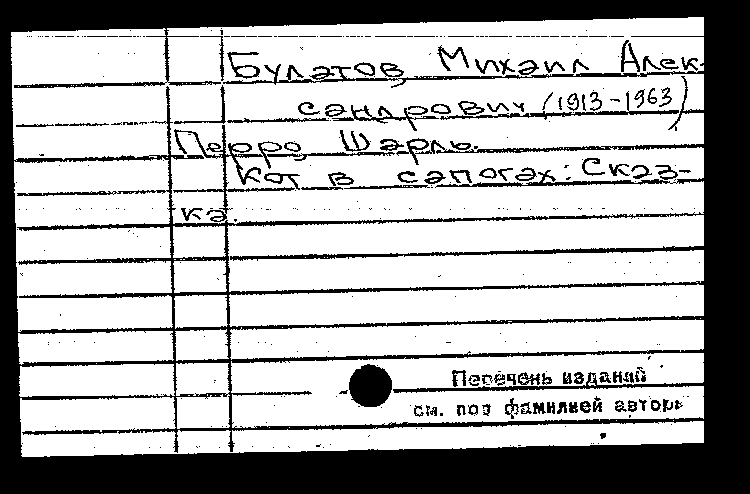 Булатов Михаил Алек-
сандрович (1913-1963)
Перро Шарль.
Кот в сапогах: Сказ-
ка.
Перечень изданий
см. под фамилией автора